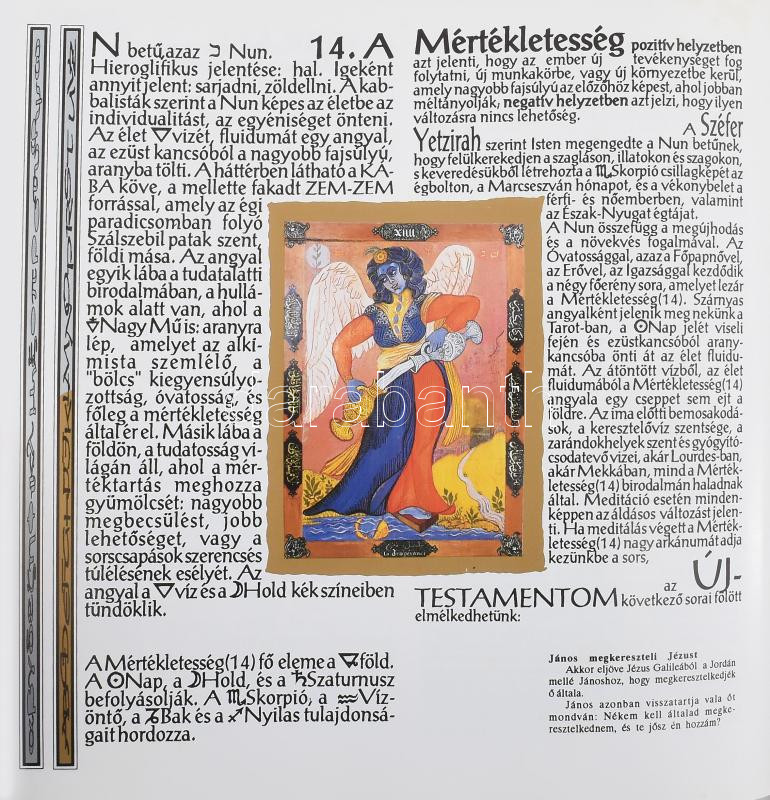 N betű, azaz נ Nun. 14. A
Hieroglifikus jelentése: hal. Igeként
annyit jelent: sarjadni, zöldellni. A kab-
balisták szerint a Nun képes az életbe az
individualitást, az egyéniséget önteni.
Az élet 🜄vizét, fluidumát egy angyal,
az ezüst kancsóból a nagyobb fajsúlyú,
aranyba tölti. A háttérben látható a KÁ-
BA köve, a mellette fakadt ZEM-ZEM
forrással, amely az égi
paradicsomban folyó
Szálszebil patak szent,
földi mása. Az angyal
egyik lába a tudatalatti
birodalmában, a hullá-
mok alatt van, ahol a
Nagy Mű is: aranyra
lép, amelyet az alkí-
mista szemlélő, a
"bölcs" kiegyensúlyo-
zottság, óvatosság, és
főleg a mértékletesség
által ér el. Másik lába a
földön, a tudatosság vi-
lágán áll, ahol a mér-
téktartás meghozza
gyümölcsét: nagyobb
megbecsülést, jobb
lehetőséget, vagy a
sorscsapások szerencsés
túlélésének esélyét. Az
angyal a 🜄víz és a ☽Hold kék színeiben
tündöklik.
A Mértékletesség(14) fő eleme a 🜃föld.
A ☉Nap, a ☽Hold, és a ♄Szaturnusz
befolyásolják. A ♏Skorpió, a ♒Víz-
öntő, a ♑Bak és a ♐Nyilas tulajdonsá-
gait hordozza.
Mértékletesség pozitív helyzetben
azt jelenti, hogy az ember új tevékenységet fog
folytatni, új munkakörbe, vagy új környezetbe kerül,
amely nagyobb fajsúlyú az előzőhöz képest, ahol jobban
méltányolják; negatív helyzetben azt jelzi, hogy ilyen
változásra nincs lehetőség.
A Széfer
Yetzirah szerint Isten megengedte a Nun betűnek,
hogy felülkerekedjen a szagláson, illatokon és szagokon,
s keveredésükből létrehozta a ♏Skorpió csillagképét az
égbolton, a Marcseszván hónapot, és a vékonybelet a
férfi- és nőemberben, valamint
az Észak-Nyugat égtájat.
A Nun összefügg a megújhodás
és a növekvés fogalmával. Az
Óvatossággal, azaz a Főpapnővel,
az Erővel, az Igazsággal kezdődik
a négy főerény sora, amelyet lezár
a Mértékletesség(14). Szárnyas
angyalként jelenik meg nekünk a
Tarot-ban, a ☉Nap jelét viseli
fején és ezüstkancsóból arany-
kancsóba önti át az élet fluidu-
mát. Az átöntött vízből, az élet
fluidumából a Mértékletesség(14)
angyala egy cseppet sem ejt a
földre. Az ima előtti bemosakodá-
sok, a keresztelővíz szentsége, a
zarándokhelyek szent és gyógyító-
csodatevő vizei, akár Lourdes-ban,
akár Mekkában, mind a Mérték-
letesség(14) birodalmán haladnak
által. Meditáció esetén minden-
képpen az áldásos változást jelen-
ti. Ha meditálás végett a Mérték-
letesség(14) nagy arkánumát adja
kezünkbe a sors,
az ÚJ-
TESTAMENTOM következő sorai fölött
elmélkedhetünk:
János megkereszteli Jézust
Akkor eljöve Jézus Galileából a Jordán
mellé Jánoshoz, hogy megkeresztelkedjék
ő általa.
János azonban visszatartja vala őt
mondván: Nékem kell általad megke-
resztelkednem, és te jősz én hozzám?
XIIII
darabanth